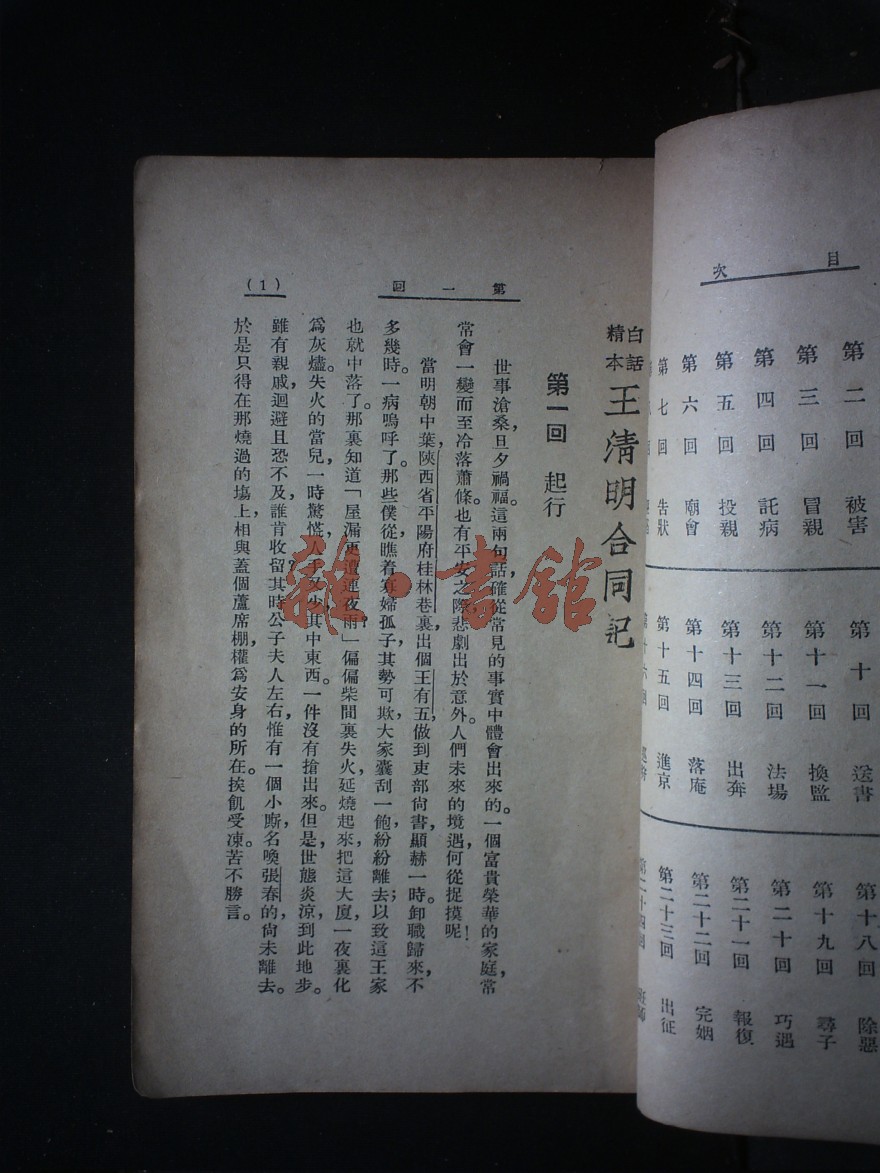 目次
第二回 被害
第三回 冒親
第四回 託病
第五回 投親
第六回 廟會
第七回 告狀
第十回 送書
第十一回 換監
第十二回 法場
第十三回 出奔
第十四回 落庵
第十五回 進京
第十六回
第十八回 除惡
第十九回 尋子
第二十回 巧遇
第二十一回 報復
第二十二回 完姻
第二十三回 出征
第二十四回 班師
第一回
(1)
白話精本 王清明合同記
第一回 起行
世事滄桑,旦夕禍福。這兩句話,確從常見的事實中體會出來的。一個富貴榮華的家庭,常
常會一變而至冷落蕭條。也有平安之際,悲劇出於意外。人們未來的境遇,何從捉摸呢!
當明朝中葉,陝西省平陽府桂林巷裏,出個王有五,做到吏部尙書,顯赫一時。卸職歸來,不
多幾時。一病嗚呼了。那些僕從,瞧着寡婦孤子,其勢可欺,大家囊刮一飽,紛紛離去;以致這王家
也就中落了。那裏知道「屋漏更遭連夜雨」?偏偏柴間裏失火,延燒起來,把這大廈,一夜裏化
爲灰燼。失火的當兒,一時驚慌,人手又少,其中東西。一件沒有搶出來。但是,世態炎涼,到此地步。
雖有親戚,迴避且恐不及,誰肯收留?其時公子夫人左右,惟有一個小厮,名喚張春的,尙未離去。
於是只得在那燒過的場上,相與蓋個蘆席棚,權爲安身的所在。挨飢受凍。苦不勝言。
雜·書館